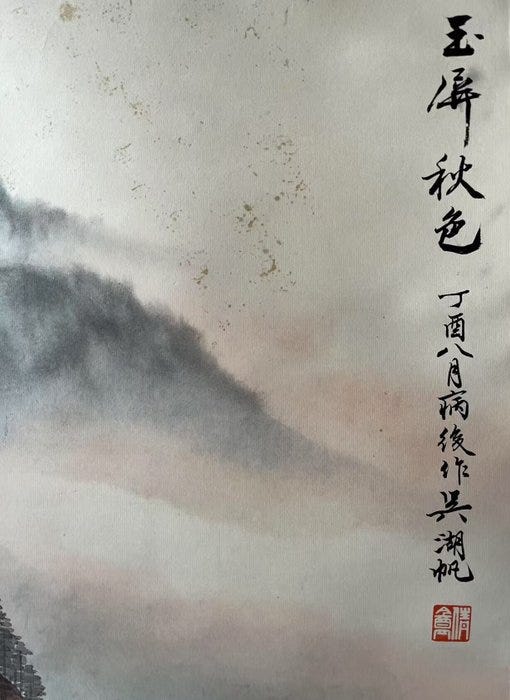 玉屏秋色
丁酉八月病後作吳湖帆